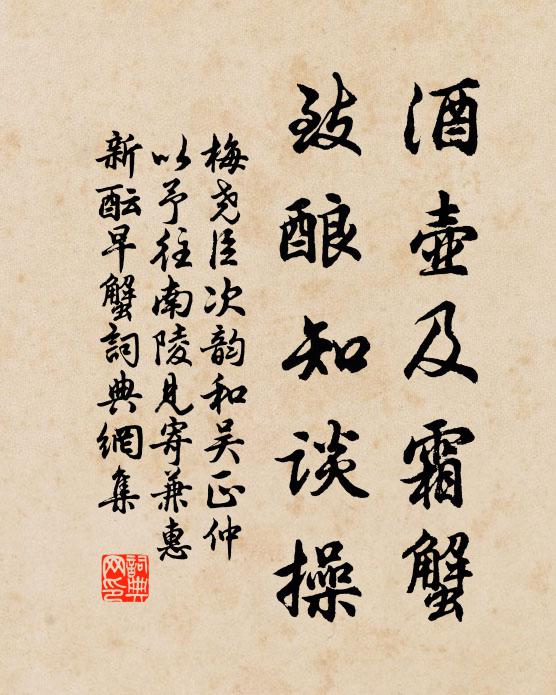 酒壶及霜蟹
致酿知谈操
梅尧臣次韵和吴正仲
以予往南陵见寄兼惠
新酝早蟹詞典網集
詞典
网印